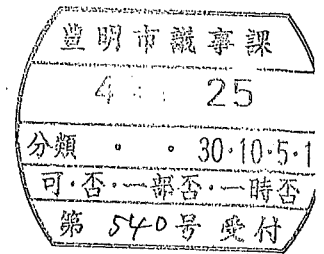 豊明市議事課
4 25
分類 ・ ・ 30・10・5・1
可・否・一部否・一時否
第 540号 受付